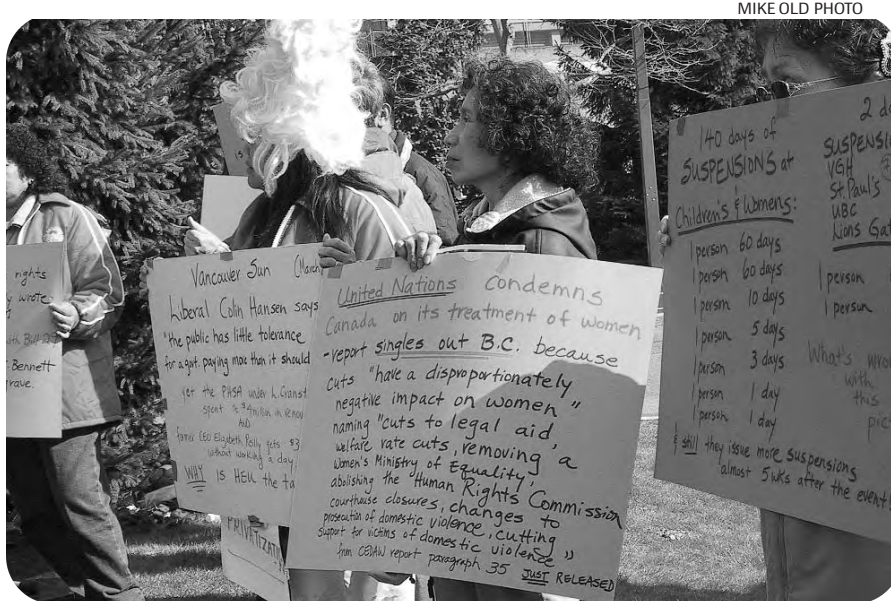 MIKE OLD PHOTO
rights
wrote
with Bill 29
Bennett
grave.
Vancouver Sun (March
Liberal Colin Hansen says
"the public has little tolerance
for a govt. paying more than it should
yet the PHSA under L.
spent
AND
former CEO Elizabeth gets $3
without working a day
WHY IS HEU the ta
PRIVATIZATI
United Nations condemns
Canada on its treatment of women
- report singles out B.C. because
cuts "have a disproportionately
negative impact on women"
naming "cuts to legal aid,
welfare rate cuts, removing a
Women's Ministry of Equality,
abolishing the Human Rights Commission
courthouse closures, changes to
prosecution of domestic violence, cutting
support for victims of domestic violence"
from CEDAW report paragraph 35 JUST RELEASED
140 days of
SUSPENSIONS at
Children's & Womens:
1 person 60 days
1 person 60 days
1 person 10 days
1 person 5 days
1 person 3 days
1 person 1 day
1 person 1 day
& still they issue more suspensions
almost 5 wks after the event!
2 d
SUSPENSI
VGH
St. Paul's
UBC
Lions Gat
1 person
1 person
What's wro
with
this
pic